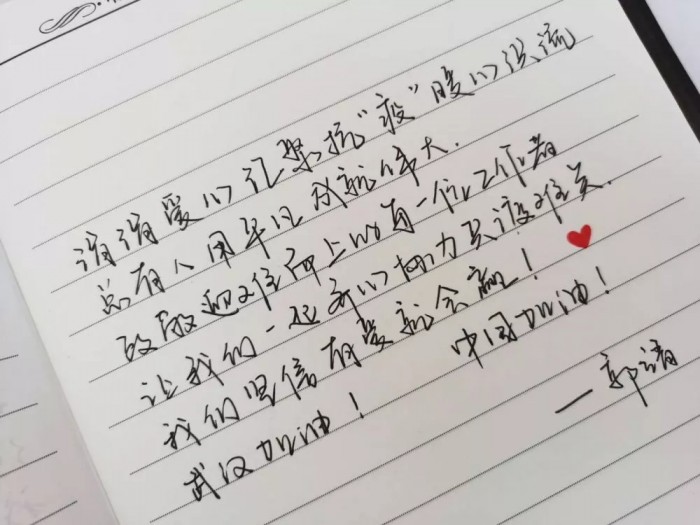 涓涓爱心汇聚抗“疫”暖心洪流
总有人用平凡成就伟大.
致敬迎难而上的每一位工作者
让我们一起齐心协力共渡难关.
我们坚信有爱就会赢!
武汉加油! 中国加油!
—郭靖